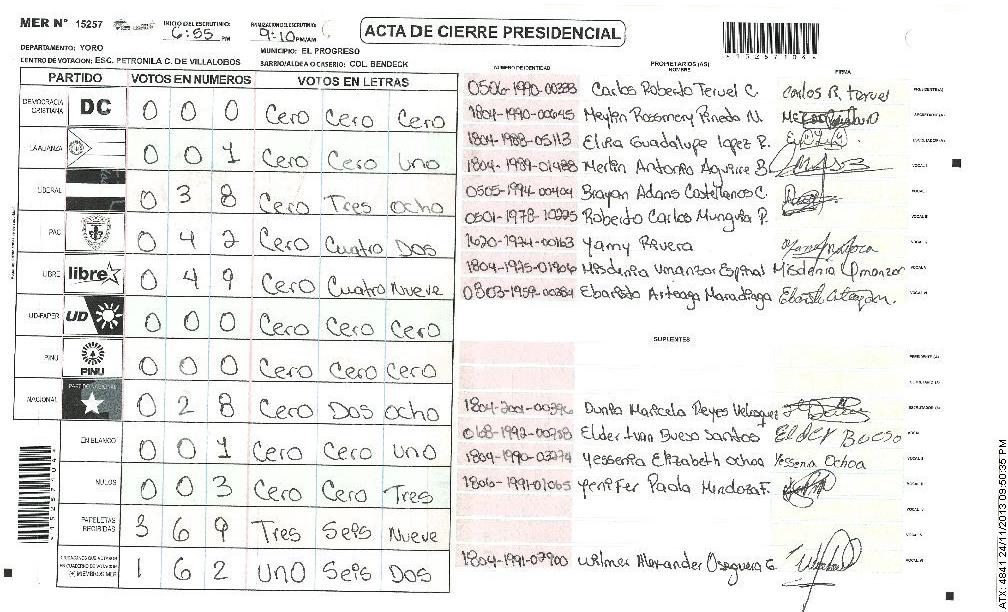 MER N° 15257
INICIO DEL ESCRUTINIO: 6:55 PM
FINALIZACION DEL ESCRUTINIO: 9:10 PM/AM
ACTA DE CIERRE PRESIDENCIAL
DEPARTAMENTO: YORO
MUNICIPIO: EL PROGRESO
CENTRO DE VOTACION: ESC. PETRONILA C. DE VILLALOBOS
BARRIO/ALDEA O CASERIO: COL. BENDECK
PARTIDO VOTOS EN NUMEROS VOTOS EN LETRAS
DEMOCRACIA CRISTIANA DC 0 0 0 Cero Cero Cero
LA ALIANZA 0 0 1 Cero Cero Uno
LIBERAL 0 3 8 Cero Tres ocho
PAC 0 4 2 Cero Cuatro Dos
LIBRE libre 0 4 9 Cero Cuatro Nueve
UD-FAPER UD 0 0 0 Cero Cero Cero
PINU PINU 0 0 0 Cero Cero Cero
NACIONAL PARTIDO NACIONAL 0 2 8 Cero Dos ocho
EN BLANCO 0 0 1 Cero Cero uno
NULOS 0 0 3 Cero Cero Tres
PAPELETAS RECIBIDAS 3 6 9 Tres Seis Nueve
1 6 2 uno Seis Dos
NUMERO DE IDENTIDAD PROPIETARIOS (AS) NOMBRE FIRMA
0506-1990-00333 Carlos Roberto Teruel C. Carlos R. Teruel PRESIDENTE(A)
1804-1990-00645 Meylin Rosmery Pineda N. SECRETARIO(A)
1804-1988-05113 Elvia Guadalupe Lopez P. ESCRUTADOR(A)
1804-1989-01488 Merlin Antonio Aguirre B. VOCAL I
0505-1994-00404 Brayan Adans Castellanos C.
0501-1978-10225 Roberto Carlos Munguia P.
1620-1974-00163 Yamy Rivera
1804-1975-01806 Misdania Umanzor Espinal Misdania Umanzor
0303-1959-00384 Ebaristo Arteaga Maradiaga
SUPLENTES
PRESIDENTE (A)
SECRETARIO (A)
1804-2001-00396 Dunia Maricela Reyes Velasquez ESCRUTADOR (A)
Elder Ivan Bueso Santos Elder Bueso
1804-1990-03274 Yessenia Elizabeth Ochoa Yessenia Ochoa
1806-1991-01065 Yenifer Paola Mendoza F.
1804-1991-07900 Wilmer Alexander Oseguera G.
ATX: 4841 24/11/2013 09:50:35 PM